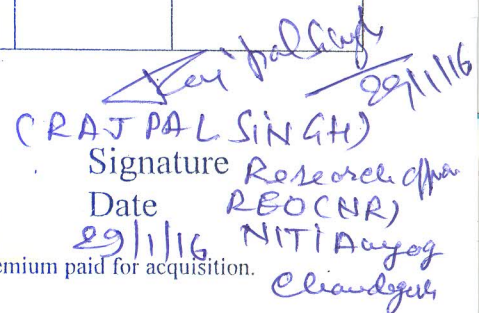 Rajpal Singh
29/1/16
(RAJ PAL SINGH)
Signature Research Officer
Date REO(NR)
29/1/16 NITI Aayog
emium paid for acquisition.
Chandigarh